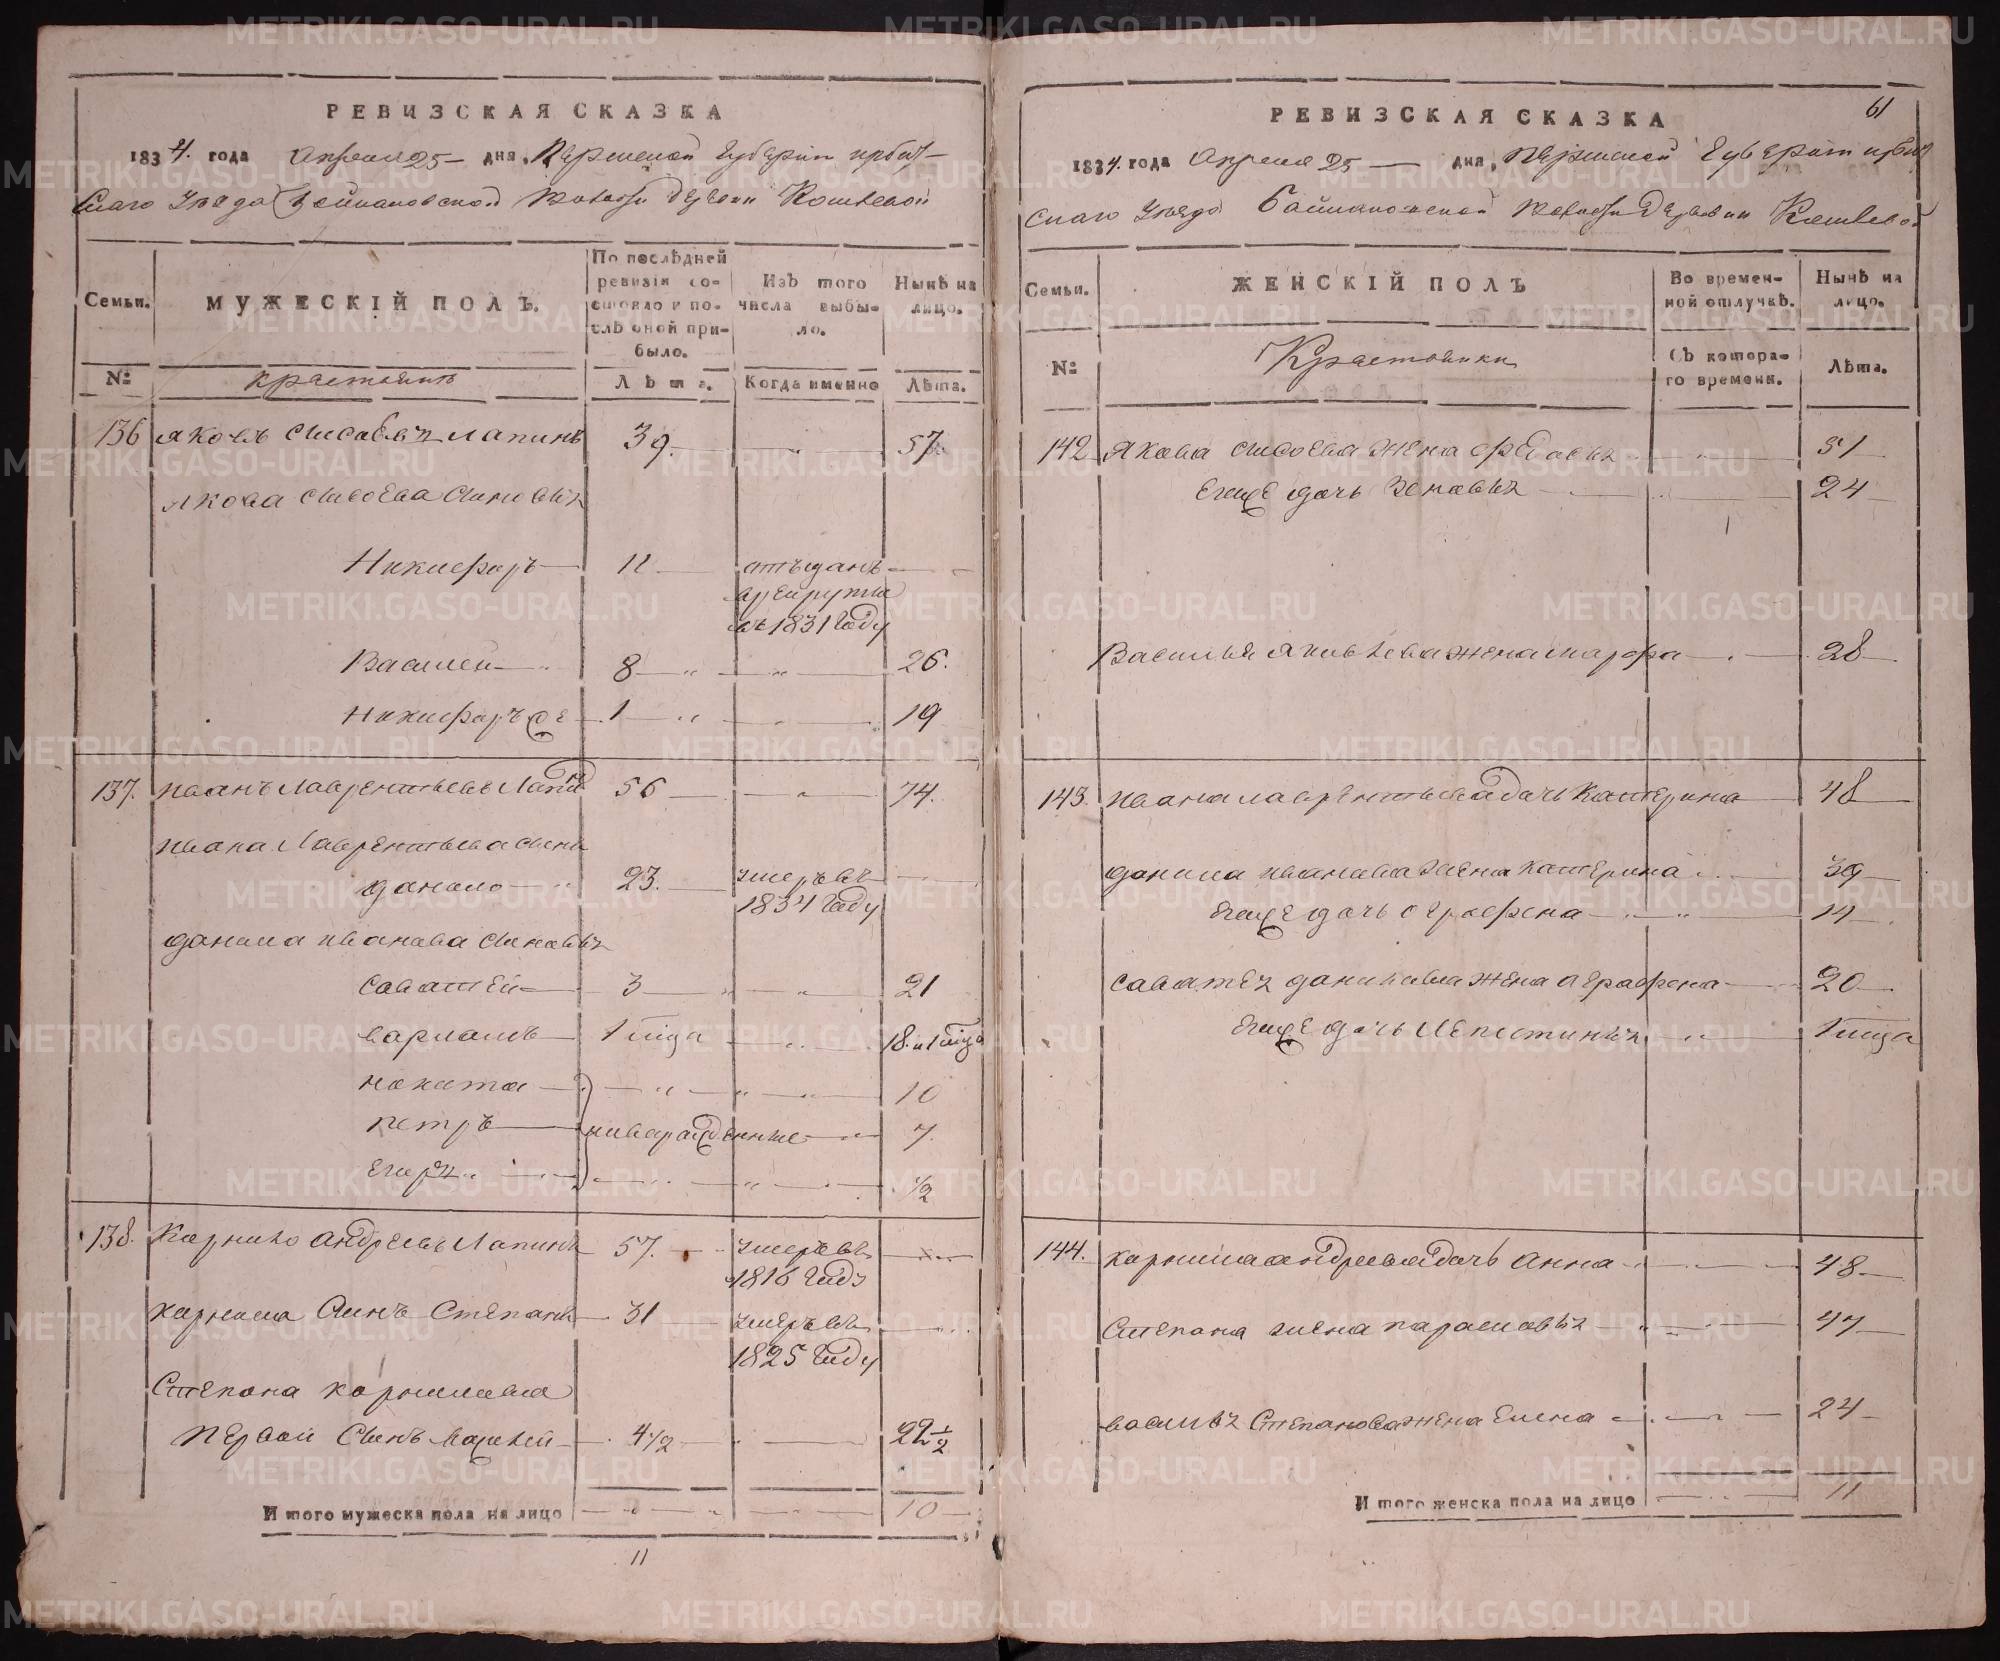 РЕВИЗСКАЯ СКАЗКА
1834. года Апреля 25 дня, Пермской губернии ирбит-
скаго уезда Байкаловской волости деревни Кошевой
Семьи.
МУЖЕСКІЙ ПОЛЪ.
По послѣдней ревизіи состояло и послѣ оной прибыло.
Изъ того числа выбыло.
Нынѣ на лицо.
№
крестьяне
Лѣта.
Когда именно
Лѣта.
136 Яковъ Сысоевъ Лапинъ 39. 57.
Якова Сысоева сыновья
Никифоръ 11 отъданъ
в рекруты
въ 1831 году
Василей 8 26.
Никифоръ 2е 1 19
137. Иванъ Лаврентьевъ Лапин 56 74.
Ивана Лаврентьева сынъ
данило 23. умеръ въ
1831 году
данила Иванова сыновья
Саватей 3 21
варламъ 1 мца 18. и 1 мца
никита 10
петръ новарожденные 7.
Егоръ 1/2
138. Корнило Андреевъ Лапинъ 57. умеръ въ
1816 году
корнила Сынъ Степанъ 31 умеръ въ
1825 году
Степана корнилова
первой Сынъ 4 1/2 22 1/2
И того мужеска пола на лицо 10
11
61
РЕВИЗСКАЯ СКАЗКА
1834. года Апреля 25 дня, Пермской Губернии ирбит
скаго уезда Байкаловской волости деревни Кошевой
Семьи.
ЖЕНСКІЙ ПОЛЪ
Во временной отлучкѣ.
Нынѣ на лицо.
№
Крестьянки
Съ котораго времени.
Лѣта.
142 Якова Сысоева жена 51
Его же дочь Зеновья 24
Василья Яковлева жена марфа 28
143. Ивана лаврентьева дочь Катерина 48
данила иванова жена катерина 39
Его же дочь огрофена 14
Саватея данилова жена агрофена 20
Его же дочь 1 мца
144. корнила андреева дочь Анна 48
Степана жена парасковья 47
василья Степанова жена Елена 24
И того женска пола на лицо 11
METRIKI.GASO-URAL.RU